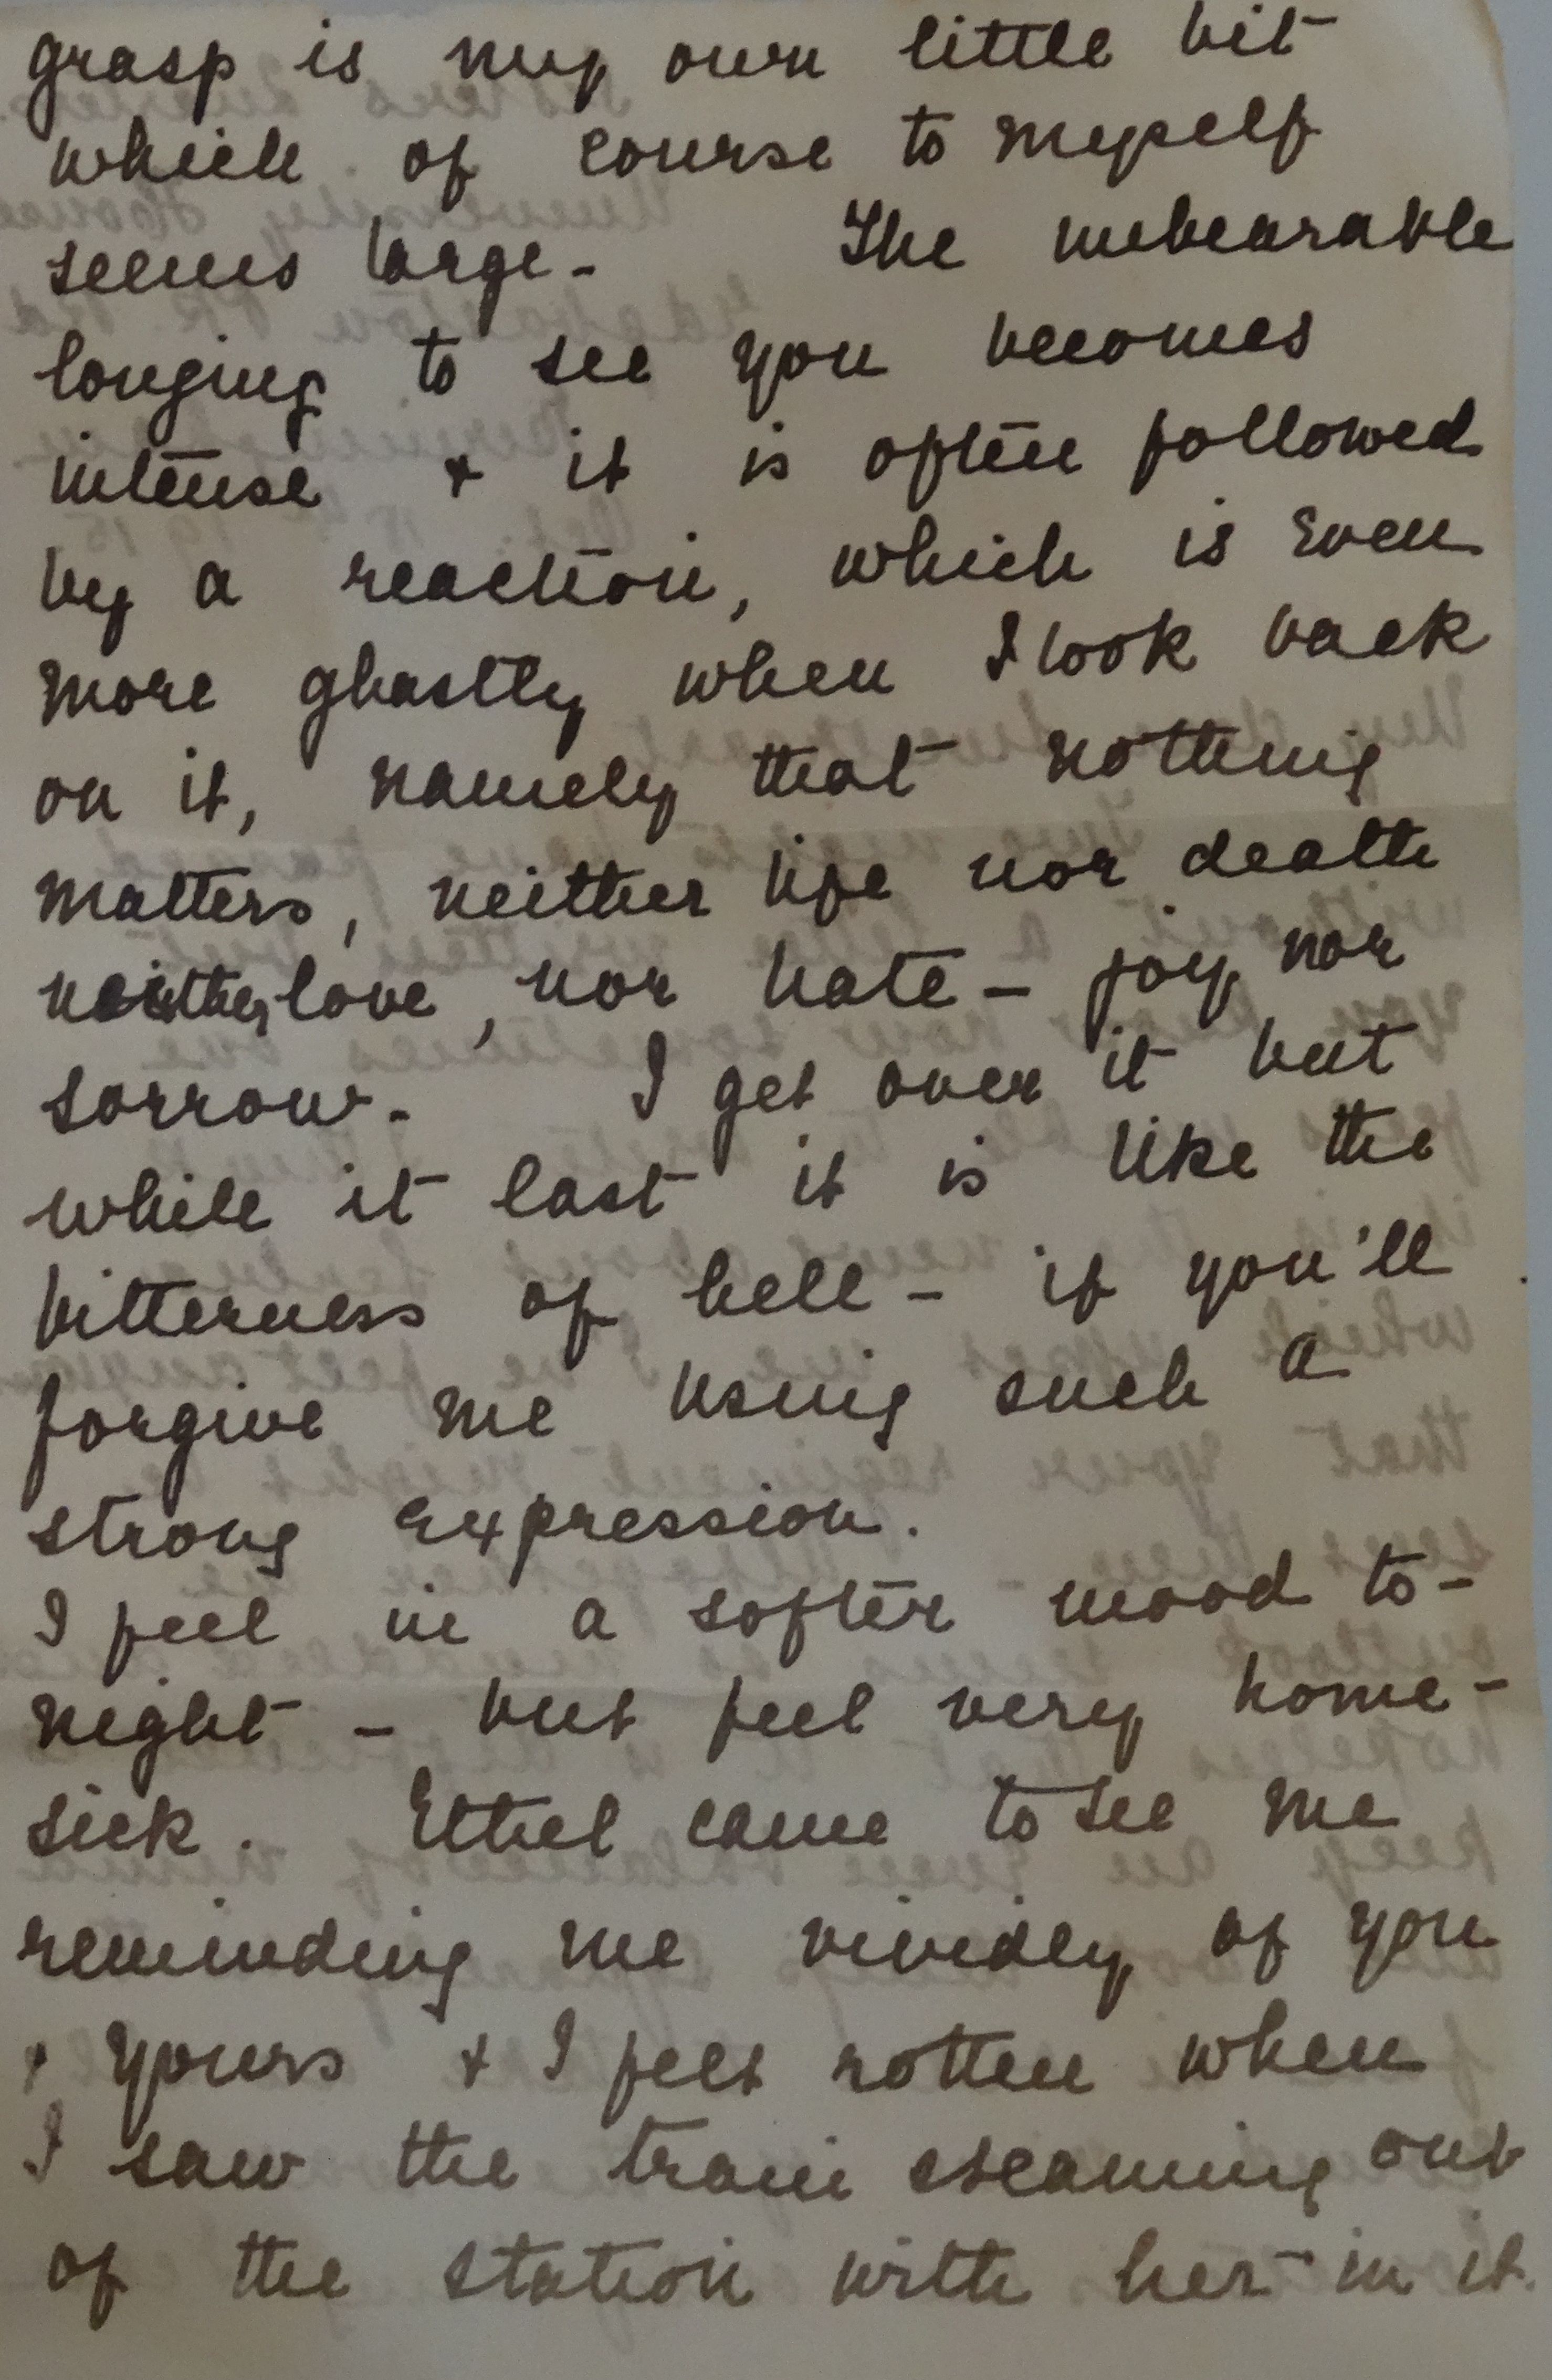 grasp is my own little bit
which of course to myself
seems large - The unbearable
longing to see you becomes
intense + it is often followed
by a reaction, which is even
more ghastly when I look back
on it, namely that nothing
matters, neither life nor death
neither love, nor hate - joy nor
sorrow - I get over it but
while it last it is like the
bitterness of hell - if you'll
forgive me using such a
strong expression.
I feel in a softer mood to-
night - but feel very home-
sick. Ethel came to see me
reminding me vividly of you
+ yours + I felt rotten when
I saw the train steaming out
of the station with her in it.